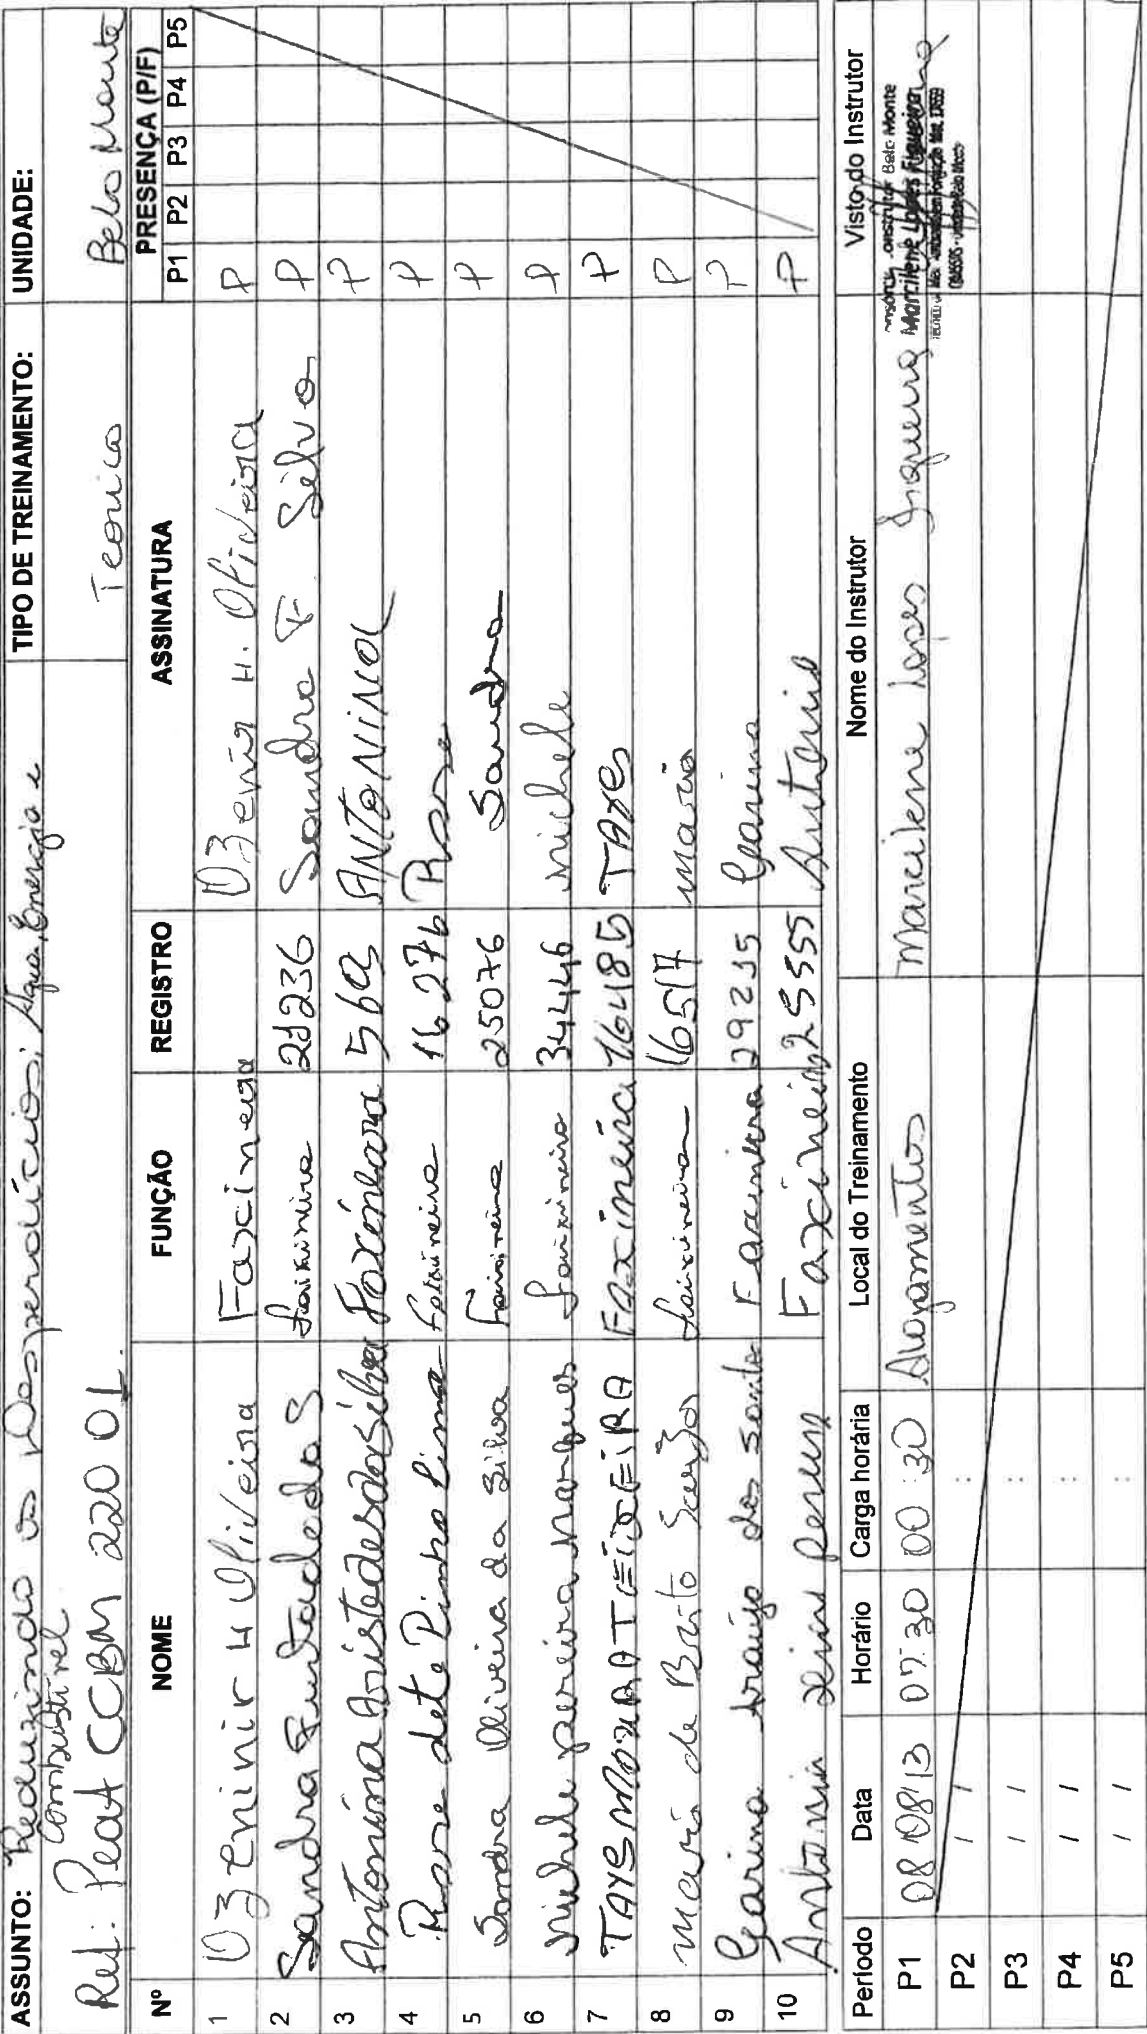 ASSUNTO: Reduzindo os Desperdícios; Água, Energia e
Combustível
TIPO DE TREINAMENTO:
UNIDADE:
Ref: Peat CCBM 220 01.
Teorico
Belo Monte
Nº NOME FUNÇÃO REGISTRO ASSINATURA PRESENÇA (P/F)
P1 P2 P3 P4 P5
1 Ozenir H Oliveira Faxineira Ozenir H. Oliveira P
2 Sandra Furtado da S faxineira 21236 Sandra F Silva P
3 Antonina Aristedes da Silva Faxineira 569 ANTONINA P
4 Rose dete Pinho Lima faxineira 16276 Rose P
5 Sandra Oliveira da Silva faxineira 25076 Sandra P
6 Michele pereira Marques faxineira 34446 Michele P
7 TAYS MOURA TEIXEIRA Faxineira 16485 TAYS P
8 Maria de Brito faxineira 16517 Maria P
9 Gearina Araújo dos Santos Faxineira 29215 Gearina P
10 Antania Faxineira 25555 Antania P
Período Data Horário Carga horária Local do Treinamento Nome do Instrutor Visto do Instrutor
P1 08/08/13 07:30 00:30 Alojamentos Marcilene Lopes Siqueira
Consórcio Construtor Belo Monte
Marcilene Lopes
P2 / / :
P3 / / :
P4 / / :
P5 / / :